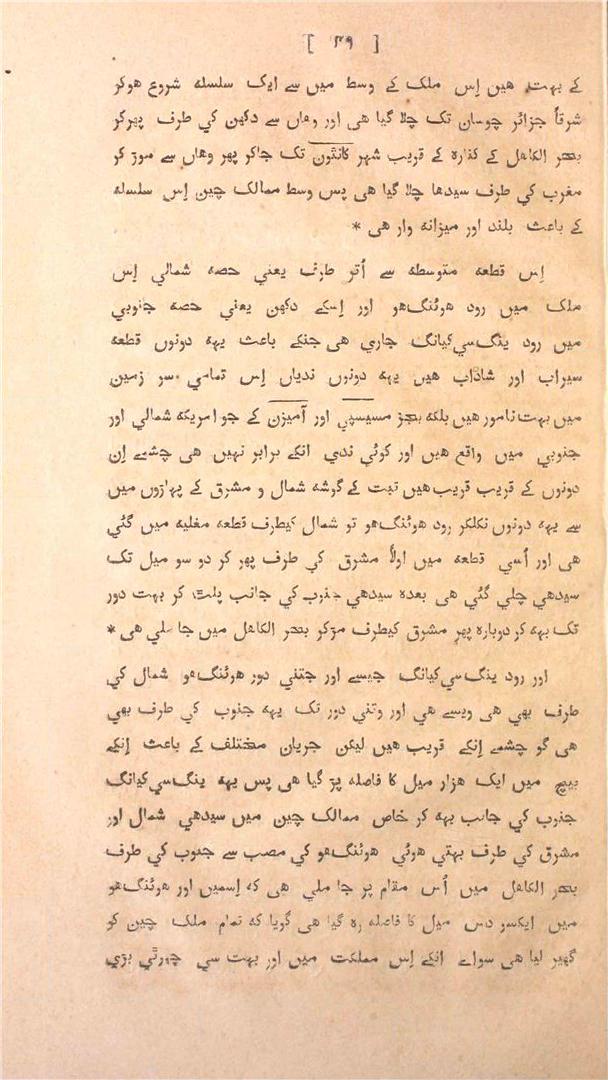 [ ٣٩ ]
کے بہت هیں اِس ملک کے وسط میں سے ایک سلسلہ شروع هوکر
شرقاً جزائر چوسان تک چلا گیا هی اور وهاں سے دکھن کي طرف پھرکر
بحر الکاهل کے کنارہ کے قریب شہر کانٹون تک جاکر پھر وهاں سے موڑ کر
مغرب کي طرف سیدها چلا گیا هی پس وسط ممالک چین اِس سلسلہ
کے باعث بلند اور میزانہ وار هی *
اِس قطعہ متوسطہ سے اُتر طرف یعني حصہ شمالي اِس
ملک میں رود هوئنگ‌هو اور اِسکے دکھن یعني حصہ جنوبي
میں رود ینگ‌سي‌کیانگ جاري هی جنکے باعث یہہ دونوں قطعہ
سیراب اور شاداب هیں یہہ دونوں ندیاں اِس تمامي سر زمین
میں بہت نامور هیں بلکہ بجز مسیسپي اور آمیزن کے جو امریکہ شمالي اور
جنوبي میں واقع هیں اور کوئي ندي انکے برابر نہیں هی چشمے اِن
دونوں کے قریب قریب هیں تبت کے گوشہ شمال و مشرق کے پہاڑوں میں
سے یہہ دونوں نکلکر رود هوئنگ‌هو تو شمال کیطرف قطعہ مغلیہ میں گئي
هی اور اُسي قطعہ میں اولاً مشرق کي طرف پھر کر دو سو میل تک
سیدهي چلي گئي هی بعدہ سیدهي جنوب کي جانب پلٹ کر بہت دور
تک بہہ کر دوبارہ پھر مشرق کیطرف مڑکر بحر الکاهل میں جا ملي هی *
اور رود ینگ‌سي‌کیانگ جیسے اور جتني دور هوئنگ‌هو شمال کي
طرف بھي هی ویسے هي اور وتني دور تک یہہ جنوب کي طرف بھي
هی گو چشمے اِنکے قریب هیں لیکن جریان مختلف کے باعث اِنکے
بیچ میں ایک هزار میل کا فاصلہ پڑ گیا هی پس یہہ ینگ‌سي‌کیانگ
جنوب کي جانب بہہ کر خاص ممالک چین میں سیدهي شمال اور
مشرق کي طرف بہتي هوئي هوئنگ‌هو کي مصب سے جنوب کي طرف
بحر الکاهل میں اُس مقام پر جا ملي هی کہ اِسمیں اور هوئنگ‌هو
میں ایکسو دس میل کا فاصلہ رہ گیا هی گویا کہ تمام ملک چین کو
گھیر لیا هی سواے انکے اِس مملکت میں اور بہت سي چھوٹي بڑي